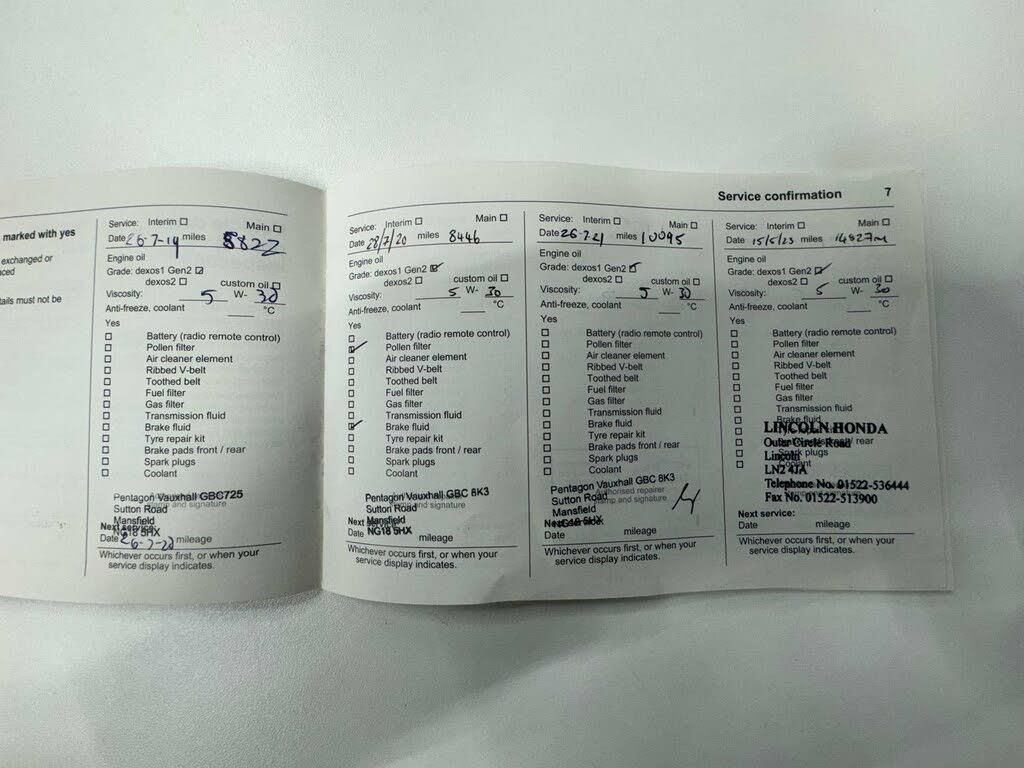 Service confirmation 7
marked with yes
exchanged or
ced
ails must not be
Service: Interim
Main
Date 26-7-19 miles 5822
Engine oil
Grade: dexos1 Gen2
dexos2
custom oil
Viscosity: 5 W- 30
Anti-freeze, coolant °C
Yes
Battery (radio remote control)
Pollen filter
Air cleaner element
Ribbed V-belt
Toothed belt
Fuel filter
Gas filter
Transmission fluid
Brake fluid
Tyre repair kit
Brake pads front / rear
Spark plugs
Coolant
Pentagon Vauxhall GBC725
Sutton Road
stamp and signature
Mansfield
Next service:
NG18 5HX
Date 26-7-20 mileage
Whichever occurs first, or when your
service display indicates.
Service: Interim
Main
Date 28/7/20 miles 8446
Engine oil
Grade: dexos1 Gen2
dexos2
custom oil
Viscosity: 5 W- 30
Anti-freeze, coolant °C
Yes
Battery (radio remote control)
Pollen filter
Air cleaner element
Ribbed V-belt
Toothed belt
Fuel filter
Gas filter
Transmission fluid
Brake fluid
Tyre repair kit
Brake pads front / rear
Spark plugs
Coolant
Pentagon Vauxhall GBC 8K3
Sutton Road
stamp and signature
Mansfield
Next
NG18 5HX
Date mileage
Whichever occurs first, or when your
service display indicates.
Service: Interim
Main
Date 26.7.21 miles 10095
Engine oil
Grade: dexos1 Gen2
dexos2
custom oil
Viscosity: 5 W- 30
Anti-freeze, coolant °C
Yes
Battery (radio remote control)
Pollen filter
Air cleaner element
Ribbed V-belt
Toothed belt
Fuel filter
Gas filter
Transmission fluid
Brake fluid
Tyre repair kit
Brake pads front / rear
Spark plugs
Coolant
Pentagon Vauxhall GBC 8K3
authorised repairer
Sutton Road
stamp and signature
Mansfield
NG18 5HX
Date mileage
Whichever occurs first, or when your
service display indicates.
Service: Interim
Main
Date 15/5/23 miles 14827m
Engine oil
Grade: dexos1 Gen2
dexos2
custom oil
Viscosity: 5 W- 30
Anti-freeze, coolant °C
Yes
Battery (radio remote control)
Pollen filter
Air cleaner element
Ribbed V-belt
Toothed belt
Fuel filter
Gas filter
Transmission fluid
Brake fluid
LINCOLN HONDA
Outer Circle Road
/ rear
Lincoln
Spark plugs
LN2 4JA
Coolant
Telephone No. 01522-536444
Fax No. 01522-513900
Next service:
Date mileage
Whichever occurs first, or when your
service display indicates.